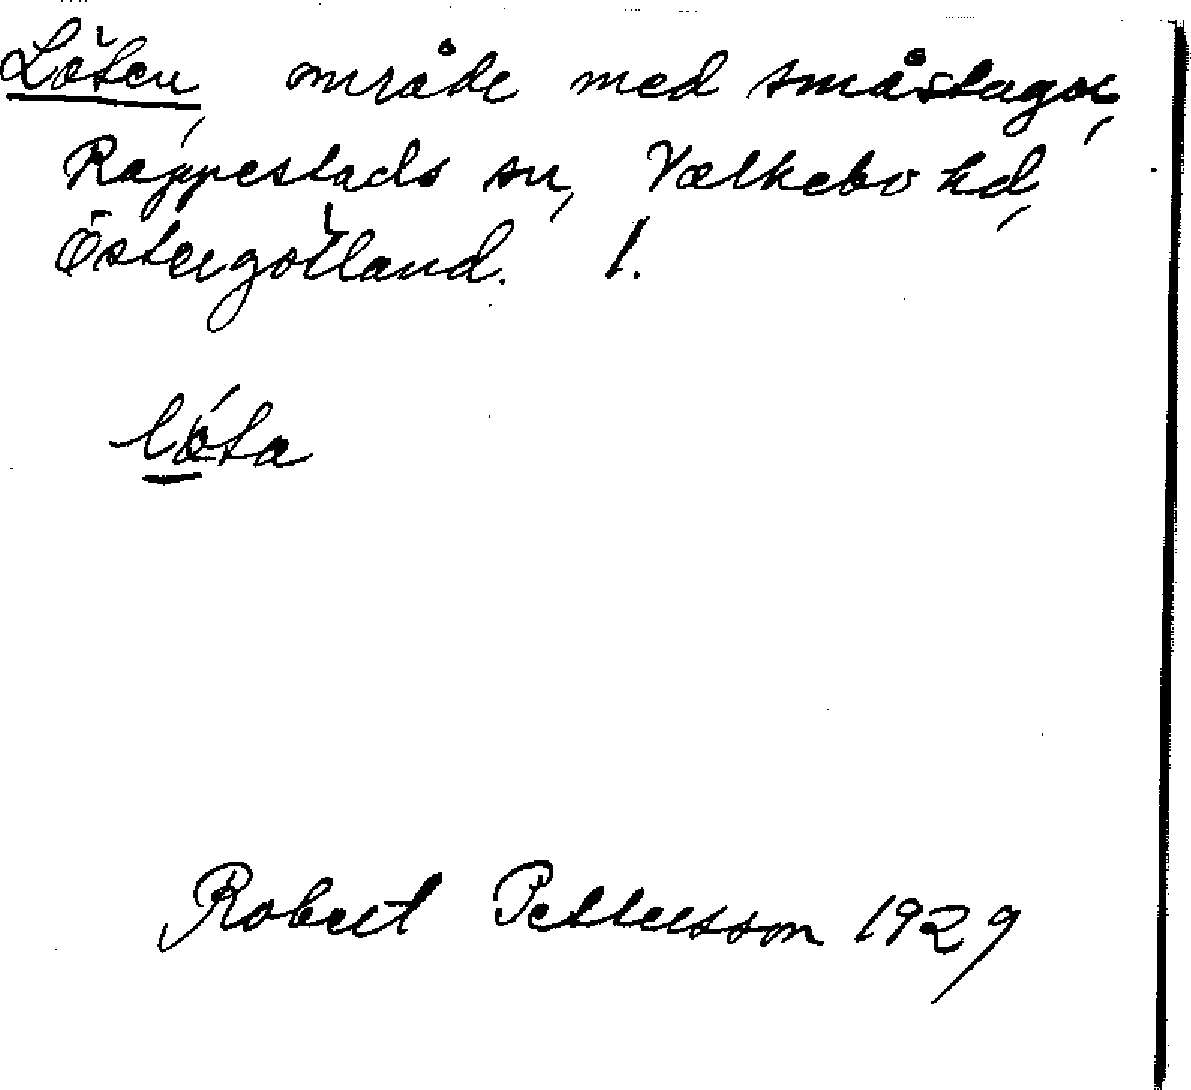 Löten, område med småstugor,
Rappestads sn, Valkebo hd,
Östergötland. 1.
lö́ta
Robert Pettersson 1929